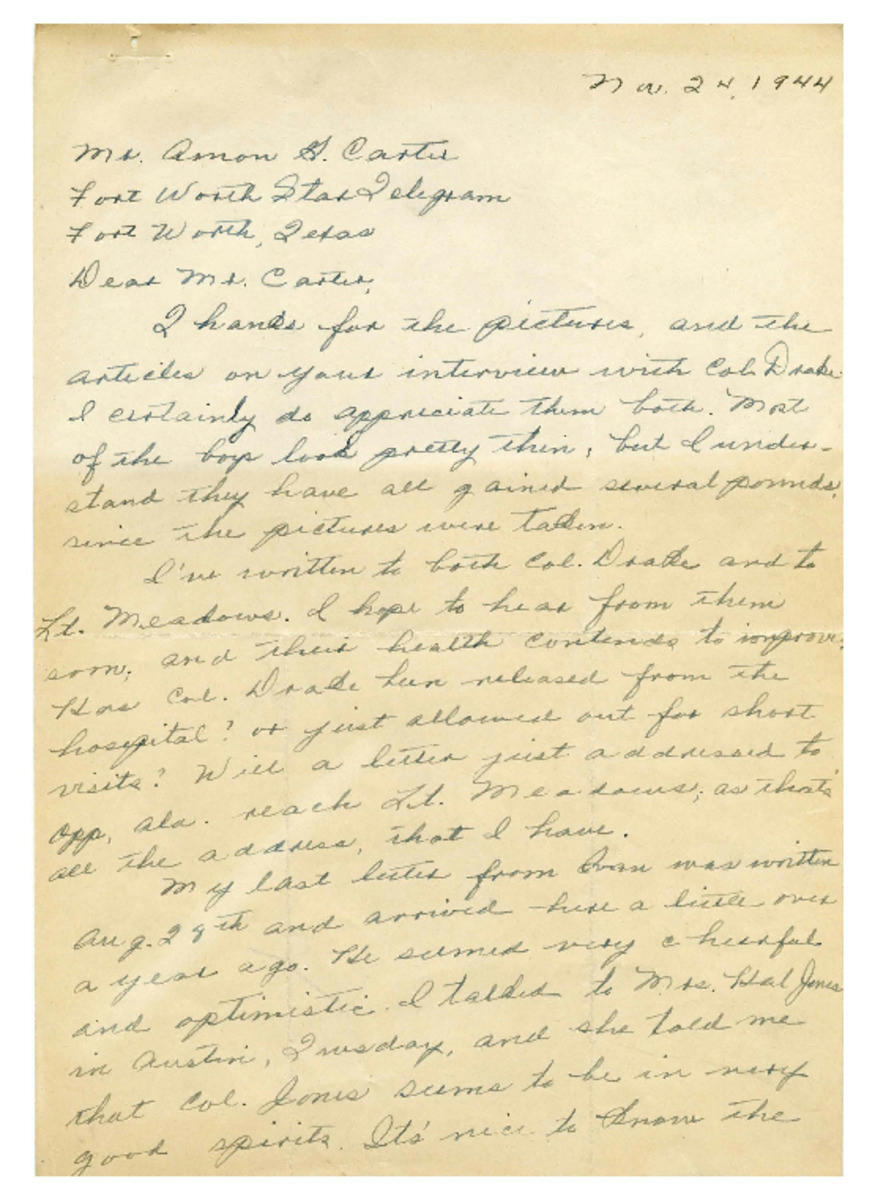 Nov. 24, 1944
Mr. Amon G. Carter
Fort Worth Star Telegram
Fort Worth, Texas
Dear Mr. Carter,
Thanks for the pictures, and the
articles on your interview with Col. Drake.
I certainly do appreciate them both. Most
of the boys look pretty thin, but I under-
stand they have all gained several pounds,
since the pictures were taken.
I've written to both Col. Drake and to
Lt. Meadows. I hope to hear from them
soon, and their health contends to improve.
Has Col. Drake been released from the
hospital? or just allowed out for short
visits? Will a letter just addressed to
Opp, Ala. reach Lt. Meadows, as that's
all the address, that I have.
My last letter from was written
Aug. 29th and arrived here a little over
a year ago. He seemed very cheerful
and optimistic. I talked to Mrs. Hal Jones
in Austin, Tuesday, and she told me
that Col. Jones seems to be in very
good spirits. It's nice to know the